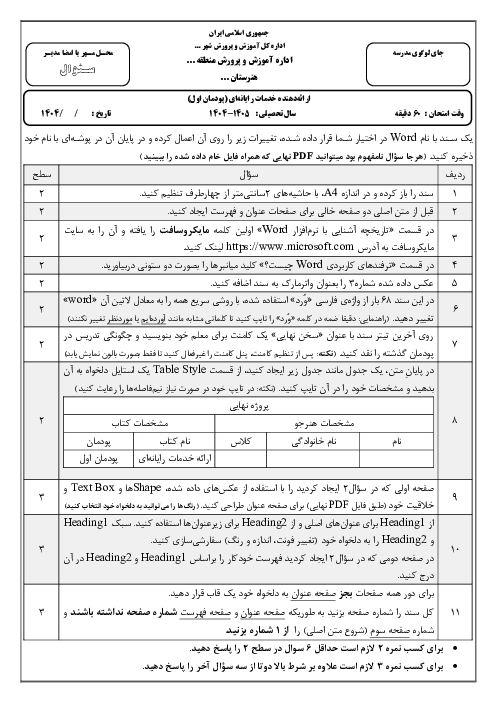 جمهوری اسلامی ایران
اداره کل آموزش و پرورش شهر ...
اداره آموزش و پرورش منطقه ...
هنرستان ...
جای لوگوی مدرسه
محل مهر یا امضا مدیر
سئوال
ارائه‌دهنده خدمات رایانه‌ای (پودمان اول)
وقت امتحان: ۶۰ دقیقه
سال تحصیلی: ۱۴۰۵-۱۴۰۴
تاریخ: / /۱۴۰۴
یک سند با نام Word در اختیار شما قرار داده شده، تغییرات زیر را روی آن اعمال کرده و در پایان آن در پوشه‌ای با نام خود
ذخیره کنید. (هرجا سؤال نامفهوم بود میتوانید PDF نهایی که همراه فایل خام داده شده را ببینید)
ردیف سؤال سطح
۱ سند را باز کرده و در اندازه A4، با حاشیه‌های ۲سانتی‌متر از چهارطرف تنظیم کنید. ۲
۲ قبل از متن اصلی دو صفحه خالی برای صفحات عنوان و فهرست ایجاد کنید. ۲
۳ در قسمت «تاریخچه آشنایی با نرم‌افزار Word» اولین کلمه مایکروسافت را یافته و آن را به سایت
مایکروسافت به آدرس https://www.microsoft.com لینک کنید. ۲
۴ در قسمت «ترفندهای کاربردی Word چیست؟» کلید میانبرها را بصورت دو ستونی دربیاورید. ۲
۵ عکس داده شده شماره۳ را بعنوان واترمارک به سند اضافه کنید. ۲
۶ در این سند ۶۸ بار از واژه‌ی فارسی «وُرد» استفاده شده، با روشی سریع همه را به معادل لاتین آن «word»
تغییر دهید. (راهنمایی: دقیقا ضمه در کلمه «وُرد» را تایپ کنید تا کلماتی مشابه مانند آورده‌ایم یا موردنظر تغییر نکنند) ۲
۷ روی آخرین تیتر سند با عنوان «سخن نهایی» یک کامنت برای معلم خود بنویسید و چگونگی تدریس در
پودمان گذشته را نقد کنید. (نکته: پس از تنظیم کامنت، پنل کامنت را غیرفعال کنید تا فقط بصورت بالون نمایش یابد) ۲
۸ در پایان متن، یک جدول مانند جدول زیر ایجاد کنید، از قسمت Table Style یک استایل دلخواه به آن
بدهید و مشخصات خود را در آن تایپ کنید. (نکته: در تایپ خود در صورت نیاز نیم‌فاصله‌ها را رعایت کنید) ۲
پروژه نهایی
مشخصات هنرجو مشخصات کتاب
نام نام خانوادگی کلاس نام کتاب پودمان
ارائه خدمات رایانه‌ای پودمان اول
۹ صفحه اولی که در سؤال۲ ایجاد کردید را با استفاده از عکس‌های داده شده، Shapeها و Text Box و
خلاقیت خود (طبق فایل PDF نهایی) برای صفحه عنوان طراحی کنید. (رنگ‌ها را می‌توانید به دلخواه خود انتخاب کنید) ۳
۱۰ از Heading1 برای عنوان‌های اصلی و از Heading2 برای زیرعنوان‌ها استفاده کنید. سبک Heading1
و Heading2 را به دلخواه خود (تغییر فونت، اندازه و رنگ) سفارشی‌سازی کنید.
در صفحه دومی که در سؤال۲ ایجاد کردید فهرست خودکار را براساس Heading1 و Heading2 در آن
درج کنید. ۳
۱۱ برای دور همه صفحات بجز صفحه عنوان به دلخواه خود یک قاب قرار دهید.
کل سند را شماره صفحه بزنید به طوریکه صفحه عنوان و صفحه فهرست شماره صفحه نداشته باشند و
شماره صفحه سوم (شروع متن اصلی) را از ۱ شماره بزنید ۳
• برای کسب نمره ۲ لازم است حداقل ۶ سوال در سطح ۲ را پاسخ دهید.
• برای کسب نمره ۳ لازم است علاوه بر شرط بالا دوتا از سه سؤال آخر را پاسخ دهید.